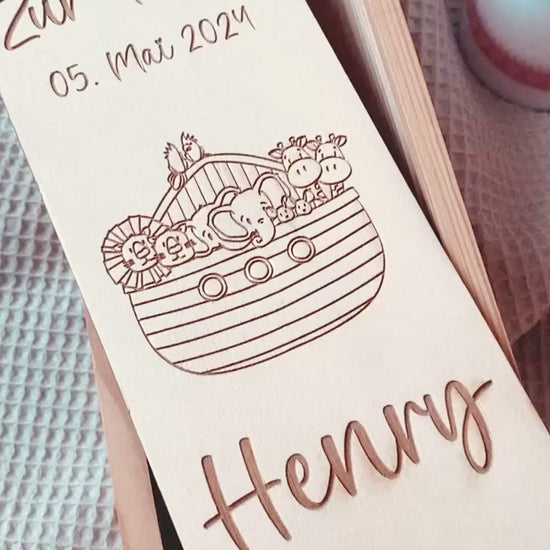 Zur
05. Mai 2024
Henry